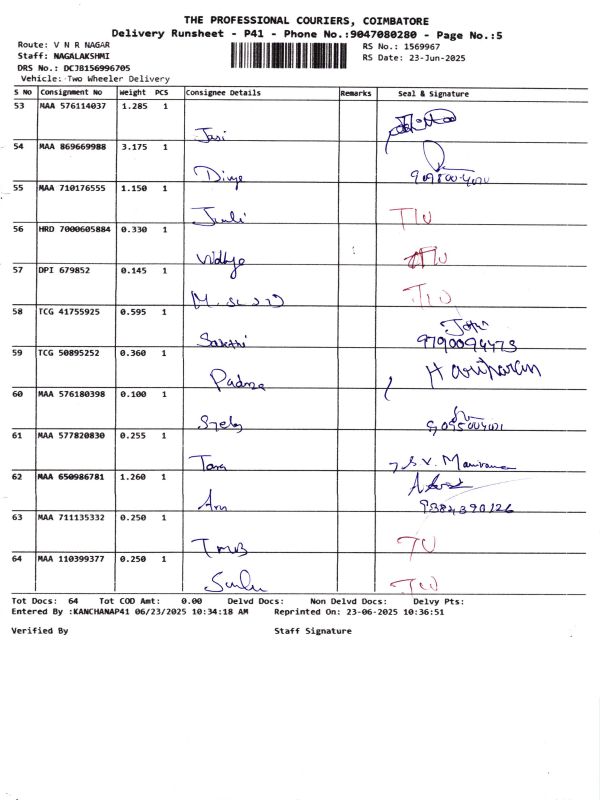 THE PROFESSIONAL COURIERS, COIMBATORE
Delivery Runsheet - P41 - Phone No.:9047080280 - Page No.:5
Route: V N R NAGAR RS No.: 1569967
Staff: NAGALAKSHMI RS Date: 23-Jun-2025
DRS No.: DCJB156996705
Vehicle: Two Wheeler Delivery
S NO Consignment No Weight PCS Consignee Details Remarks Seal & Signature
53 MAA 576114037 1.285 1
Jasi
54 MAA 869669988 3.175 1
Divya
55 MAA 710176555 1.150 1
56 HRD 7000605884 0.330 1
Vidhya
57 DPI 679852 0.145 1
58 TCG 41755925 0.595 1
Sakthi 9790094473
59 TCG 50895252 0.360 1
Padma Hariharan
60 MAA 576180398 0.100 1
61 MAA 577820830 0.255 1
Tara
62 MAA 650986781 1.260 1
Arn 9384390126
63 MAA 711135332 0.250 1
TMB
64 MAA 110399377 0.250 1
Tot Docs: 64 Tot COD Amt: 0.00 Delvd Docs: Non Delvd Docs: Delvy Pts:
Entered By :KANCHANAP41 06/23/2025 10:34:18 AM Reprinted On: 23-06-2025 10:36:51
Verified By Staff Signature